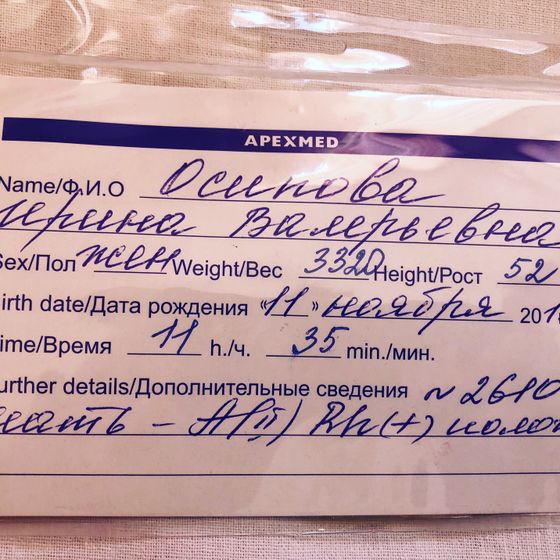 APEXMED
Name/Ф.И.О Осипова
Ирина Валерьевна
Sex/Пол жен Weight/Вес 3320 Height/Рост 52
irth date/Дата рождения «11» ноября 201
ime/Время 11 h./ч. 35 min./мин.
urther details/Дополнительные сведения ~ 2610
мать – A(II) Rh(+) полож